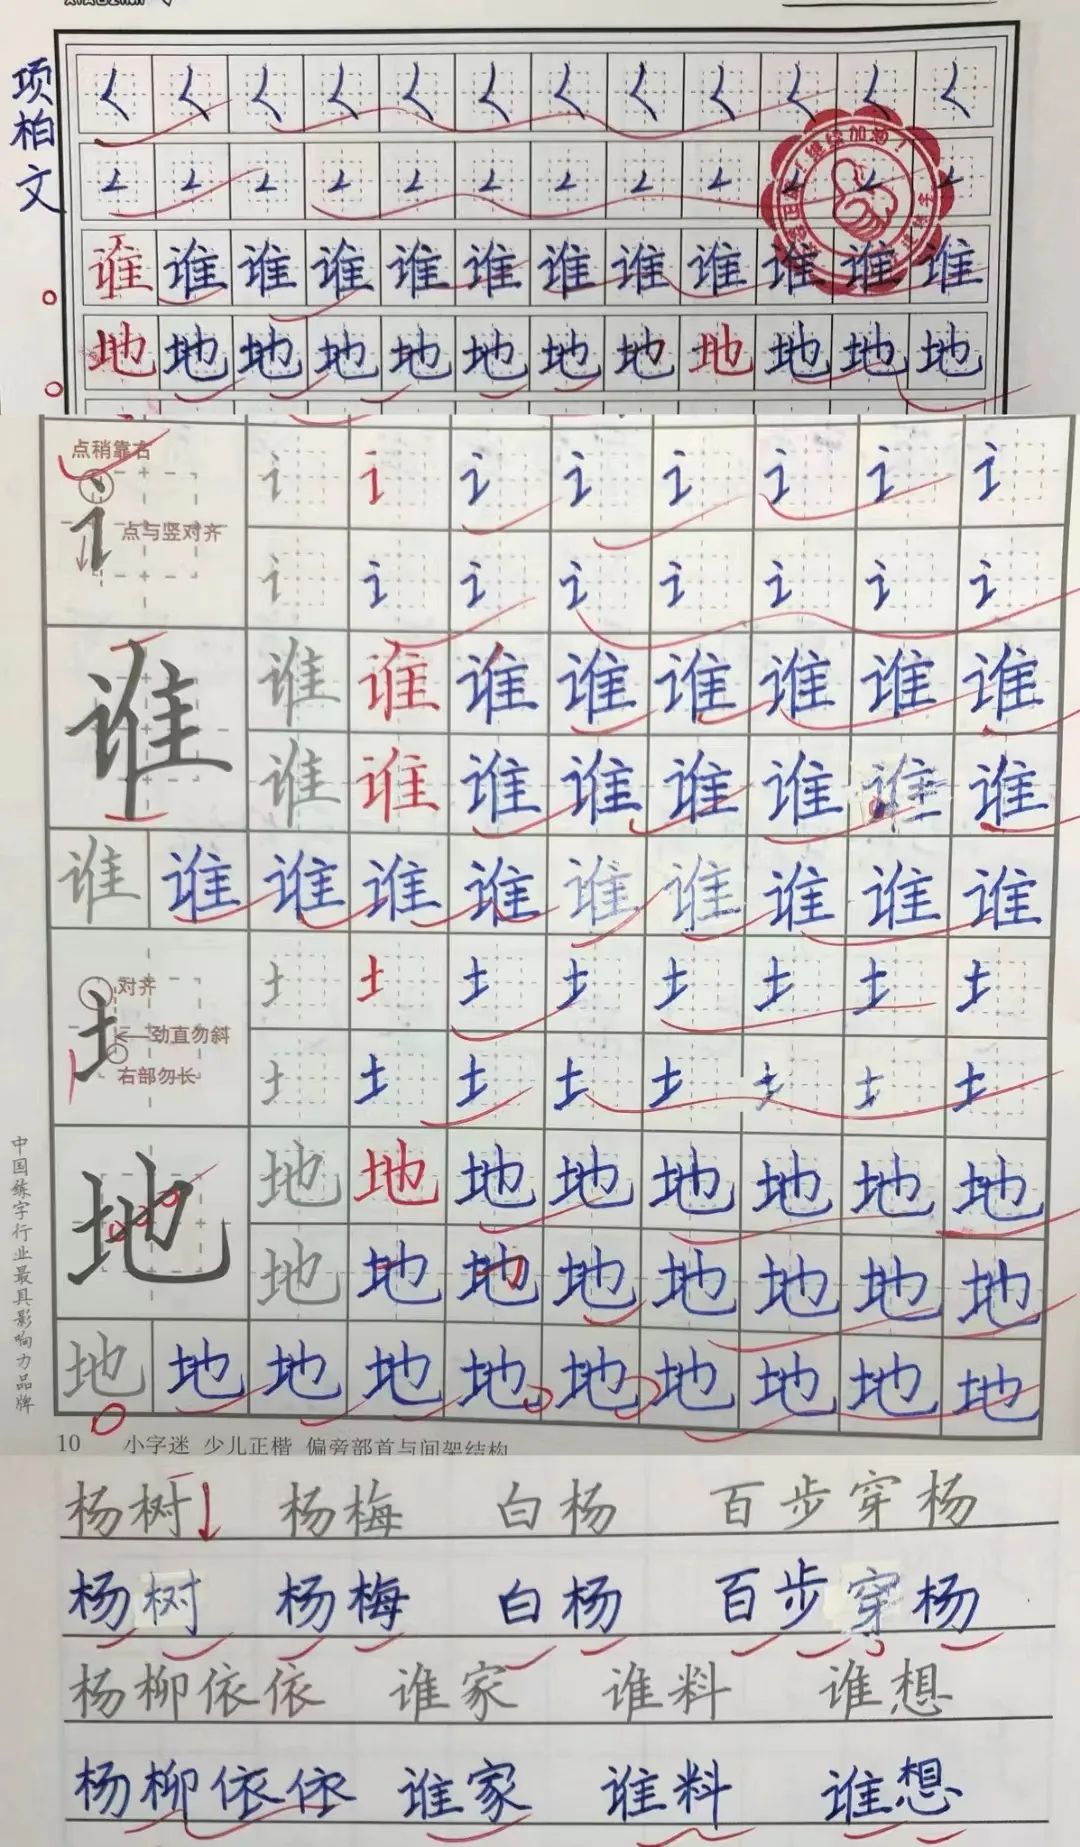 项柏文
继续加油！
谁谁谁谁谁谁谁谁谁谁谁谁
地地地地地地地地地地地地
点稍靠右
点与竖对齐
讠讠讠讠讠讠讠讠
讠讠讠讠讠讠讠讠
谁
谁谁谁谁谁谁谁谁
谁谁谁谁谁谁谁谁
谁谁谁谁谁谁谁谁谁谁
对齐
劲直勿斜
右部勿长
土土土土土土土土
土土土土土土土土
地
地地地地地地地地
地地地地地地地地
地地地地地地地地地地
中国练字行业最具影响力品牌
10 小字迷 少儿正楷 偏旁部首与间架结构
杨树 杨梅 白杨 百步穿杨
杨树 杨梅 白杨 百步穿杨
杨柳依依 谁家 谁料 谁想
杨柳依依 谁家 谁料 谁想